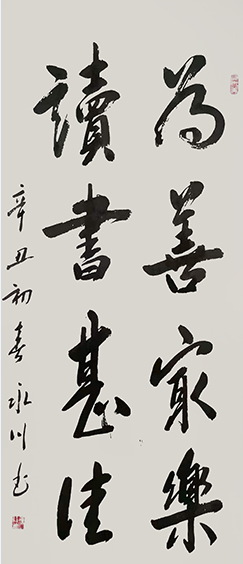 为善最樂
讀書甚佳
辛丑初春永川書